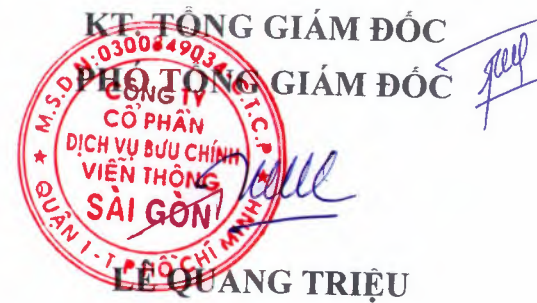 KT. TỔNG GIÁM ĐỐC
PHÓ TỔNG GIÁM ĐỐC
CÔNG TY
CỔ PHẦN
DỊCH VỤ BƯU CHÍNH
VIỄN THÔNG
SÀI GÒN
QUẬN 1 - T.P HỒ CHÍ MINH
LÊ QUANG TRIỆU